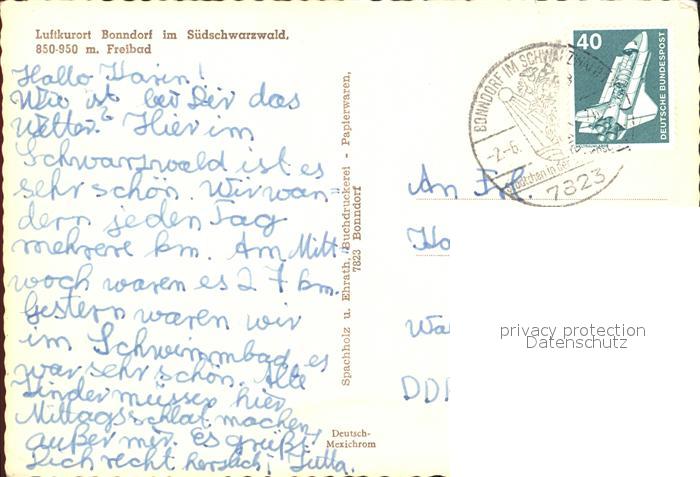 Luftkurort Bonndorf im Südschwarzwald,
850-950 m. Freibad
Hallo Karin!
Wie ist bei Dir das
Wetter? Hier im
Schwarzwald ist es
sehr schön. Wir wan=
dern jeden Tag
mehrere km. Am Mitt=
woch waren es 27 km.
Gestern waren wir
im Schwimmbad es
war sehr schön. Alle
Kinder müssen hier
Mittagsschlaf machen,
außer mir. Es grüßt
Dich recht herzlich, Jutta.
Spachholz u. Ehrath, Buchdruckerei - Papierwaren,
7823 Bonndorf
Deutsch-
Mexichrom
40
DEUTSCHE BUNDESPOST
BONNDORF IM SCHWARZWALD
-2.-6.
7823
An Frl.
Ho
Wa
DDR
privacy protection
Datenschutz